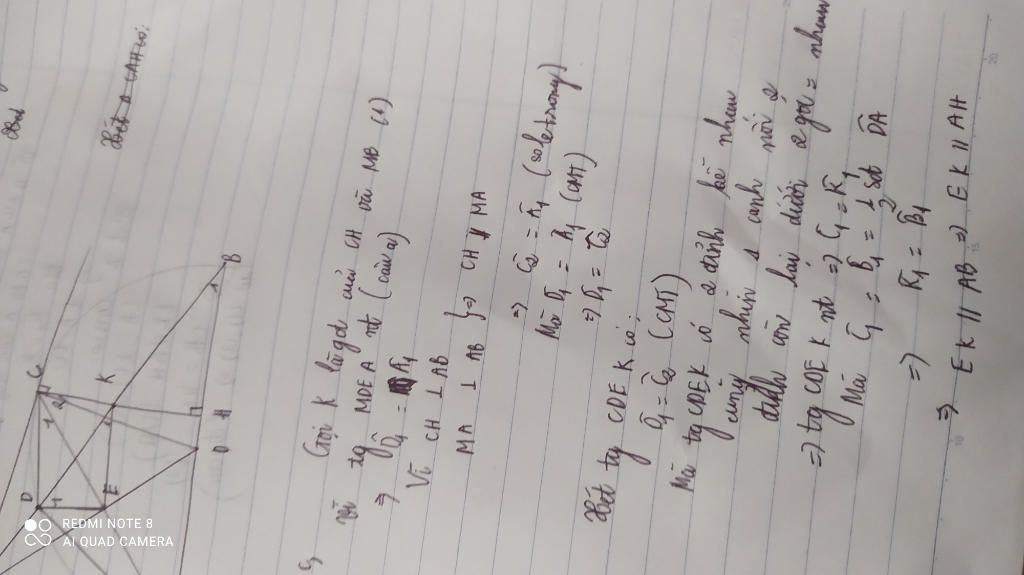 Xét
Xét Δ CAH có:
D
C
1
1
2
K
B
1
1
E
O
H
c,
Gọi K là gđ của CH và MB (1)
Vì tg MDEA nt (câu a)
⇒ D̂1 = Â1
Vì CH ⊥ AB
MA ⊥ AB } ⇒ CH // MA
⇒ Ĉ2 = Â1 (sole trong)
Mà D̂1 = Â1 (CMT)
⇒ D̂1 = Ĉ2
Xét tg CDEK có:
D̂1 = Ĉ2 (CMT)
Mà tg CDEK có 2 đỉnh kề nhau
cùng nhìn 1 cạnh nối 2
đỉnh còn lại dưới 2 góc = nhau
⇒ tg CDEK nt ⇒ Ĉ1 = K̂1
Mà Ĉ1 = B̂1 = 1/2 sđ DA
⇒ K̂1 = B̂1
⇒ EK // AB ⇒ EK // AH
REDMI NOTE 8
AI QUAD CAMERA